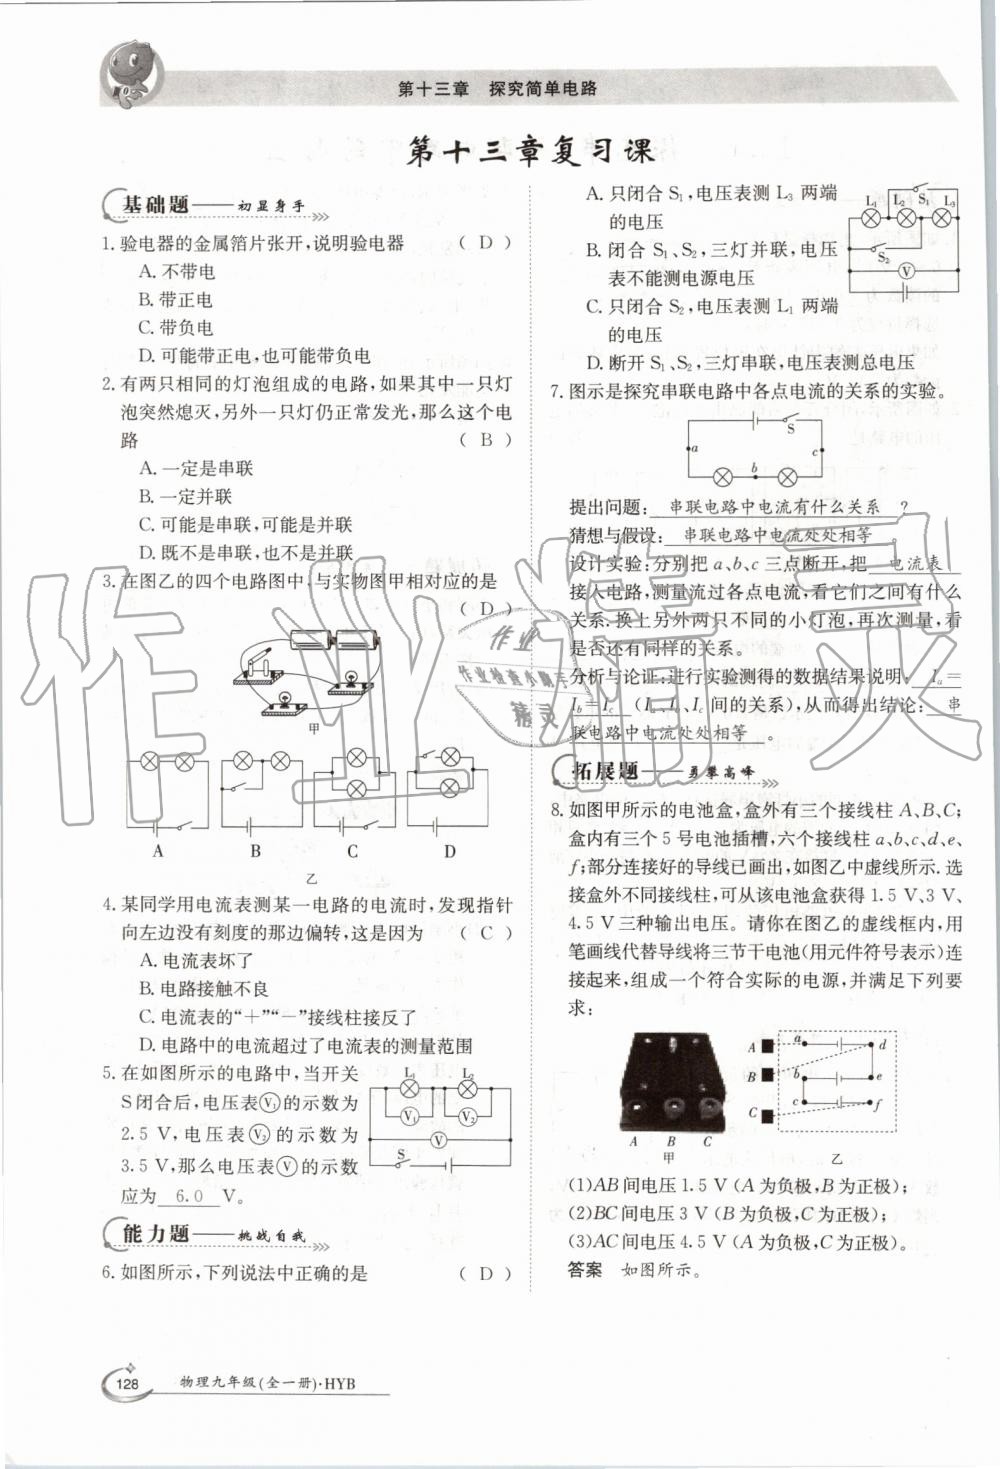 第十三章 探究简单电路
第十三章复习课
基础题——初显身手
1. 验电器的金属箔片张开，说明验电器 （ D ）
A. 不带电
B. 带正电
C. 带负电
D. 可能带正电，也可能带负电
2. 有两只相同的灯泡组成的电路，如果其中一只灯
泡突然熄灭，另外一只灯仍正常发光，那么这个电
路 （ B ）
A. 一定是串联
B. 一定并联
C. 可能是串联，可能是并联
D. 既不是串联，也不是并联
3. 在图乙的四个电路图中，与实物图甲相对应的是
（ D ）
甲
A B C D
乙
4. 某同学用电流表测某一电路的电流时，发现指针
向左边没有刻度的那边偏转，这是因为 （ C ）
A. 电流表坏了
B. 电路接触不良
C. 电流表的“＋”“－”接线柱接反了
D. 电路中的电流超过了电流表的测量范围
5. 在如图所示的电路中，当开关
S闭合后，电压表Ⓥ₁的示数为
2.5 V，电压表Ⓥ₂的示数为
3.5 V，那么电压表Ⓥ的示数
应为 6.0 V。
L₁ L₂
V₁ V₂
V
S
能力题——挑战自我
6. 如图所示，下列说法中正确的是 （ D ）
A. 只闭合 S₁，电压表测 L₃ 两端
的电压
B. 闭合 S₁、S₂，三灯并联，电压
表不能测电源电压
C. 只闭合 S₂，电压表测 L₁ 两端
的电压
D. 断开 S₁、S₂，三灯串联，电压表测总电压
L₁ L₂ S₁ L₃
S₂
V
7. 图示是探究串联电路中各点电流的关系的实验。
S
a c
b
提出问题： 串联电路中电流有什么关系 ？
猜想与假设： 串联电路中电流处处相等 。
设计实验：分别把 a、b、c 三点断开，把 电流表
接入电路，测量流过各点电流，看它们之间有什么
关系．换上另外两只不同的小灯泡，再次测量，看
是否还有同样的关系。
分析与论证：进行实验测得的数据结果说明： Iₐ＝
I_b＝I_c （Iₐ、I_b、I_c 间的关系），从而得出结论： 串
联电路中电流处处相等 。
拓展题——勇攀高峰
8. 如图甲所示的电池盒，盒外有三个接线柱 A、B、C；
盒内有三个 5 号电池插槽，六个接线柱 a、b、c、d、e、
f；部分连接好的导线已画出，如图乙中虚线所示．选
接盒外不同接线柱，可从该电池盒获得 1.5 V、3 V、
4.5 V 三种输出电压。请你在图乙的虚线框内，用
笔画线代替导线将三节干电池（用元件符号表示）连
接起来，组成一个符合实际的电源，并满足下列要
求：
A B C
甲
A a d
B b e
C c f
乙
(1)AB间电压 1.5 V（A 为负极，B 为正极）；
(2)BC间电压 3 V（B 为负极，C 为正极）；
(3)AC间电压 4.5 V（A 为负极，C 为正极）。
答案 如图所示。
128 物理九年级（全一册）·HYB
作业精灵
作业
作业检查小助手
精灵